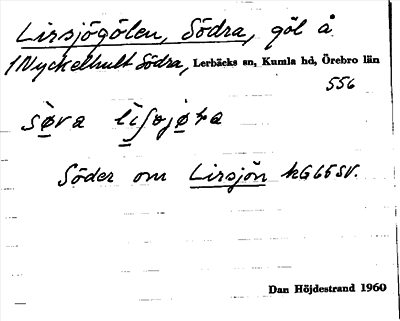 Lirsjögölen, Södra, göl å
1 Nyckelhult Södra, Lerbäcks sn, Kumla hd, Örebro län
556
Söder om Lirsjön kG65SV.
Dan Höjdestrand 1960